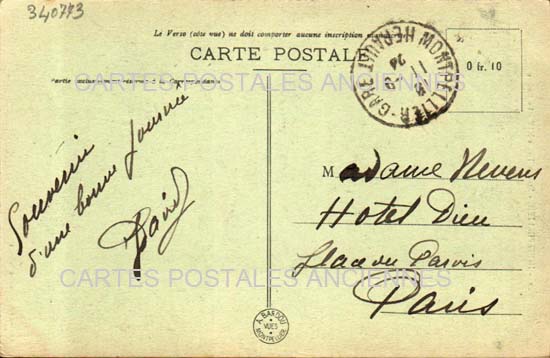 340773
Le Verso (côté vue) ne doit comporter aucune inscription
CARTE POSTALE
MONTPELLIER-GARE HERAULT
11
24
0 fr. 10
Cette
CARTES POSTALES ANCIENNES
Souvenir
d'une bonne journée
M adame Nevens
Hotel Dieu
Place du Parvis
Paris
CARTES POSTALES ANCIENNES
A. BARDOU
VUES
MONTPELLIER